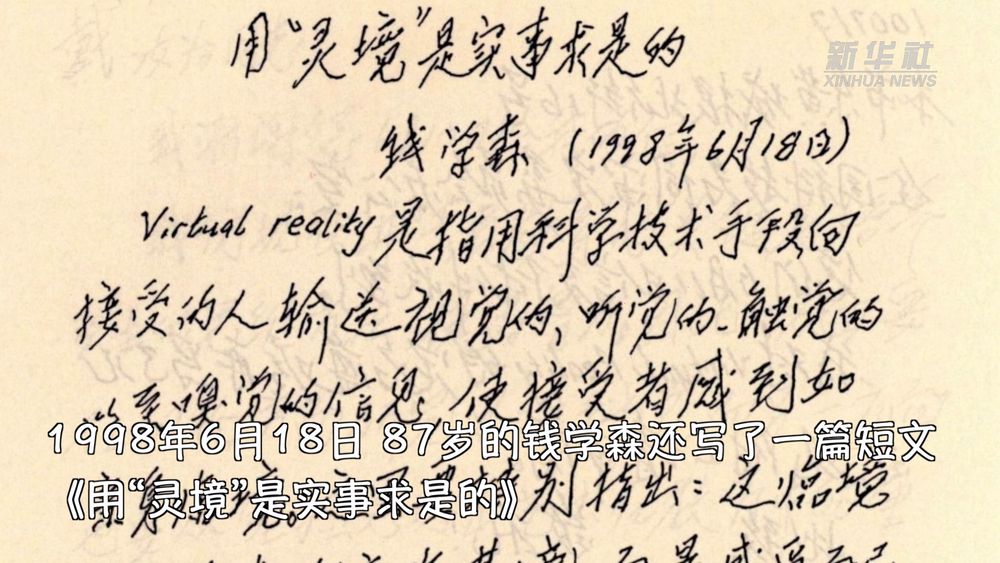 新华社
XINHUA NEWS
用“灵境”是实事求是的
钱学森 (1998年6月18日)
Virtual reality是指用科学技术手段向
接受的人输送视觉的、听觉的、触觉的
至嗅觉的信息,使接受者感到如
1998年6月18日 87岁的钱学森还写了一篇短文
《用“灵境”是实事求是的》
别指出:这临境